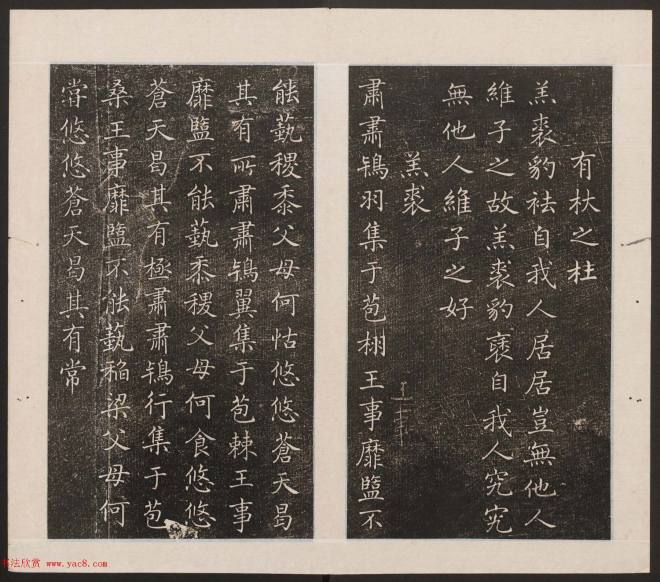 有杕之杜
羔裘豹袪自我人居居豈無他人
維子之故羔裘豹褎自我人究究
無他人維子之好
羔裘
肅肅鴇羽集于苞栩王事靡盬不
能蓺稷黍父母何怙悠悠蒼天曷
其有所肅肅鴇翼集于苞棘王事
靡盬不能蓺黍稷父母何食悠悠
蒼天曷其有極肅肅鴇行集于苞
桑王事靡盬不能蓺稻粱父母何
嘗悠悠蒼天曷其有常
书法欣赏 www.yac8.com